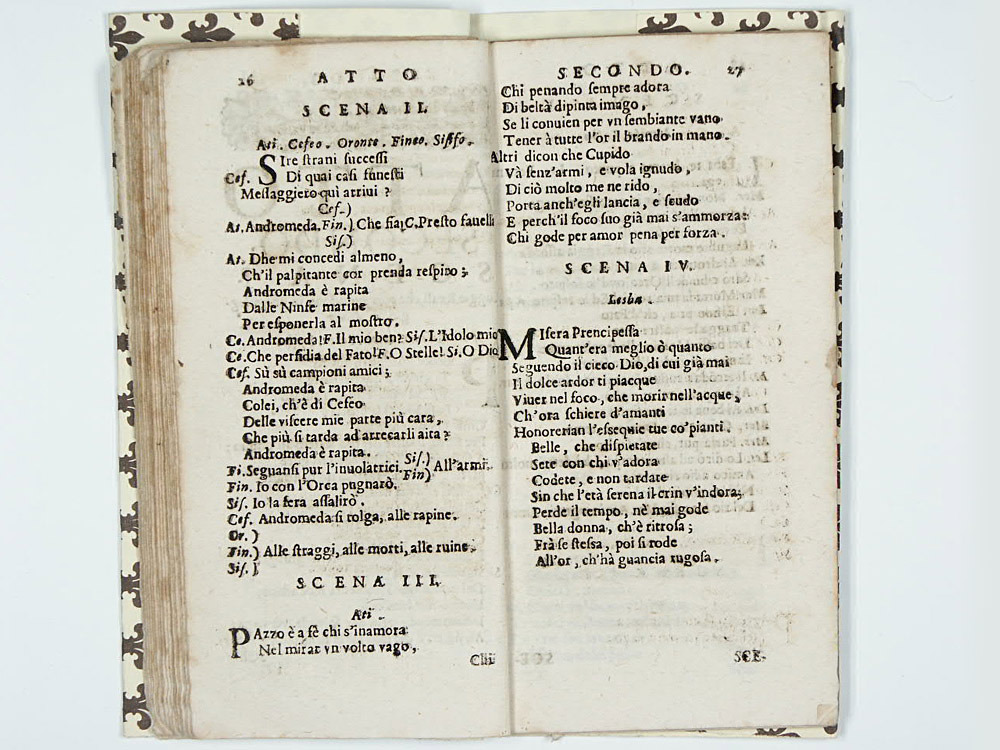 26 ATTO
SCENA II.
Ati. Cefeo. Oronte. Fineo. Sisifo.
Cef. SIre strani successi
Di quai casi funesti
Messaggiero quì arriui ?
Cef.)
At. Andromeda. Fin.) Che fia? C. Presto fauell
Sis.)
At. Dhe mi concedi almeno,
Ch'il palpitante cor prenda respiro ;
Andromeda è rapita
Dalle Ninfe marine
Per esponerla al mostro.
Ce. Andromeda! F. Il mio ben? Sis. L'Idolo mio
Ce. Che perfidia del Fato! F. O Stelle! Si. O Dio
Cef. Sù sù campioni amici ;
Andromeda è rapita
Colei, ch'è di Cefeo
Delle viscere mie parte più cara,
Che più si tarda ad arrecarli aita ?
Andromeda è rapita.
Fi. Seguansi pur l'inuolatrici. Sis.) Fin) All'armi.
Fin. Io con l'Orca pugnarò.
Sis. Io la fera assalirò.
Cef. Andromeda si tolga, alle rapine.
Or. )
Fin.) Alle straggi, alle morti, alle ruine.
Sis. )
SCENA III.
Ati.
PAzzo è a fè chi s'inamora
Nel mirar vn volto vago,
Chi
SECONDO. 27
Chi penando sempre adora
Di beltà dipinta imago,
Se li conuien per vn sembiante vano
Tener à tutte l'or il brando in mano.
Altri dicon che Cupido
Và senz'armi, e vola ignudo,
Di ciò molto me ne rido,
Porta anch'egli lancia, e scudo
E perch'il foco suo già mai s'ammorza:
Chi gode per amor pena per forza.
SCENA IV.
Lesba.
MIsera Prencipessa
Quant'era meglio ò quanto
Seguendo il cieco Dio, di cui già mai
Il dolce ardor ti piacque
Viuer nel foco, che morir nell'acque ;
Ch'ora schiere d'amanti
Honorerian l'essequie tue co'pianti.
Belle, che dispietate
Sete con chi v'adora
Godete, e non tardate
Sin che l'età serena il crin v'indora ;
Perde il tempo, nè mai gode
Bella donna, ch'è ritrosa ;
Frà se stessa, poi si rode
All'or, ch'hà guancia rugosa.
SCE-